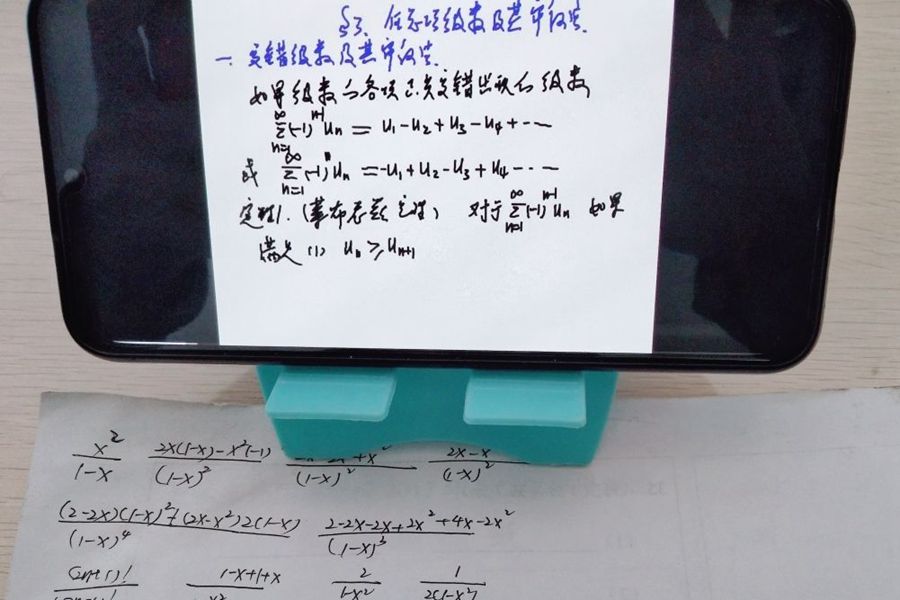 §3、任意项级数及其审敛法
一、交错级数及其审敛法.
如果级数的各项正负交错出现的级数
∞ Σ n=1 (-1)^{n-1} u_n = u_1 - u_2 + u_3 - u_4 + ⋯
或 ∞ Σ n=1 (-1)^n u_n = -u_1 + u_2 - u_3 + u_4 ⋯
定理1.(莱布尼兹定理) 对于 ∞ Σ n=1 (-1)^{n-1} u_n 如果
满足 (1) u_n ≥ u_{n+1}
x^2/(1-x) (2x(1-x)-x^2(-1))/(1-x)^2 +x^2/(1-x)^2 (2x-x)/(1-x)^2
((2-2x)(1-x)^2+(2x-x^2)2(1-x))/(1-x)^4 (2-2x-2x+2x^2+4x-2x^2)/(1-x)^3
(2n+1)! (1-x+1+x)/ 2/(1-x^2) 1/(2(1-x^2))